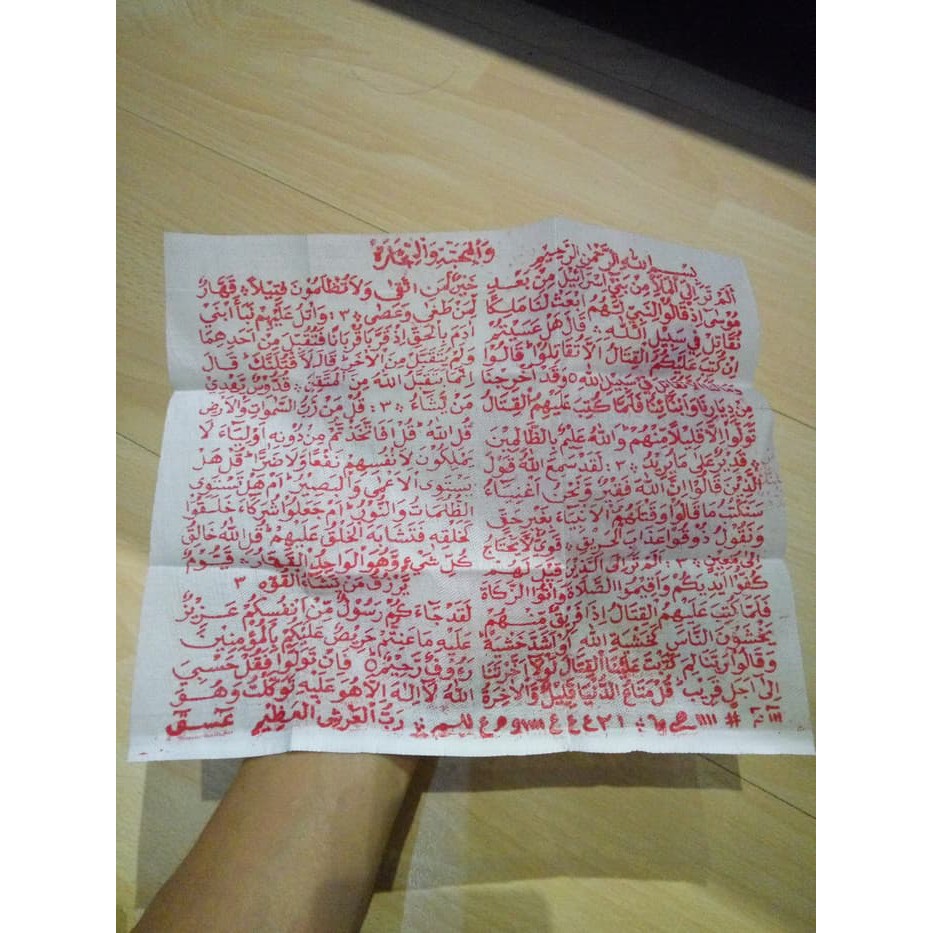 بسم الله الرحمن الرحيم
وَالْمَحَبَّةِ وَالتِّجَارَةِ
اَلَمْ تَرَ اِلَى الْمَلَاِ مِنْ بَنِي اِسْرَائِيلَ مِنْ بَعْدِ
مُوْسٰى اِذْ قَالُوْا لِنَبِيٍّ لَّهُمُ ابْعَثْ لَنَا مَلِكًا
نُّقَاتِلْ فِي سَبِيْلِ اللّٰهِ ۞ قَالَ هَلْ عَسَيْتُمْ
اِنْ كُتِبَ عَلَيْكُمُ الْقِتَالُ اَلَّا تُقَاتِلُوْا قَالُوْا
نُقَاتِلَ فِي سَبِيْلِ اللّٰهِ وَقَدْ اُخْرِجْنَا
مِنْ دِيَارِنَا وَاَبْنَائِنَا فَلَمَّا كُتِبَ عَلَيْهِمُ الْقِتَالُ
تَوَلَّوْا اِلَّا قَلِيْلًا مِّنْهُمْ وَاللّٰهُ عَلِيْمٌ بِالظَّالِمِيْنَ
قَدِيْرٌ عَلٰى مَا يُرِيْدُ ۞ ٣ : لَقَدْ سَمِعَ اللّٰهُ قَوْلَ
الَّذِيْنَ قَالُوْا اِنَّ اللّٰهَ فَقِيْرٌ وَنَحْنُ اَغْنِيَاءُ
سَنَكْتُبُ مَا قَالُوْا وَقَتْلَهُمُ الْاَنْبِيَاءَ بِغَيْرِ حَقٍّ
وَنَقُوْلُ ذُوْقُوْا عَذَابَ الْحَرِيْقِ قَوِيٌّ لَا يَحْتَاجُ
اِلٰى مُعِيْنٍ ۞ ٣ : اَلَمْ تَرَ اِلَى الَّذِيْنَ قِيْلَ لَهُمْ
كُفُّوْا اَيْدِيَكُمْ وَاَقِيْمُوا الصَّلَاةَ وَاٰتُوا الزَّكَاةَ
فَلَمَّا كُتِبَ عَلَيْهِمُ الْقِتَالُ اِذَا فَرِيْقٌ مِّنْهُمْ
يَخْشَوْنَ النَّاسَ كَخَشْيَةِ اللّٰهِ اَوْ اَشَدَّ خَشْيَةً
وَقَالُوْا رَبَّنَا لِمَ كَتَبْتَ عَلَيْنَا الْقِتَالَ لَوْلَا اَخَّرْتَنَا
اِلٰى اَجَلٍ قَرِيْبٍ قُلْ مَتَاعُ الدُّنْيَا قَلِيْلٌ وَالْاٰخِرَةُ
خَيْرٌ لِّمَنِ اتَّقٰى وَلَا تُظْلَمُوْنَ فَتِيْلًا ۞ قَهَّارٌ
لِمَنْ طَغٰى وَعَصٰى ۞ ٣ : وَاتْلُ عَلَيْهِمْ نَبَاَ ابْنَيْ
اٰدَمَ بِالْحَقِّ اِذْ قَرَّبَا قُرْبَانًا فَتُقُبِّلَ مِنْ اَحَدِهِمَا
وَلَمْ يُتَقَبَّلْ مِنَ الْاٰخَرِ قَالَ لَاَقْتُلَنَّكَ قَالَ
اِنَّمَا يَتَقَبَّلُ اللّٰهُ مِنَ الْمُتَّقِيْنَ قُدُّوْسٌ يَهْدِيْ
مَنْ يَّشَاءُ ۞ ٣ : قُلْ مَنْ رَّبُّ السَّمٰوَاتِ وَالْاَرْضِ
قُلِ اللّٰهُ قُلْ اَفَاتَّخَذْتُمْ مِّنْ دُوْنِهِ اَوْلِيَاءَ لَا
يَمْلِكُوْنَ لِاَنْفُسِهِمْ نَفْعًا وَلَا ضَرًّا قُلْ هَلْ
يَسْتَوِى الْاَعْمٰى وَالْبَصِيْرُ اَمْ هَلْ تَسْتَوِى
الظُّلُمَاتُ وَالنُّوْرُ اَمْ جَعَلُوْا لِلّٰهِ شُرَكَاءَ خَلَقُوْا
كَخَلْقِهِ فَتَشَابَهَ الْخَلْقُ عَلَيْهِمْ قُلِ اللّٰهُ خَالِقُ
كُلِّ شَيْءٍ وَّهُوَ الْوَاحِدُ الْقَهَّارُ قَيُّوْمٌ
يَّرْزُقُ مَنْ يَّشَاءُ الْقُوَّةَ ٣
لَقَدْ جَاءَكُمْ رَسُوْلٌ مِّنْ اَنْفُسِكُمْ عَزِيْزٌ
عَلَيْهِ مَا عَنِتُّمْ حَرِيْصٌ عَلَيْكُمْ بِالْمُؤْمِنِيْنَ
رَءُوْفٌ رَّحِيْمٌ فَاِنْ تَوَلَّوْا فَقُلْ حَسْبِيَ
اللّٰهُ لَا اِلٰهَ اِلَّا هُوَ عَلَيْهِ تَوَكَّلْتُ وَهُوَ
رَبُّ الْعَرْشِ الْعَظِيْمِ